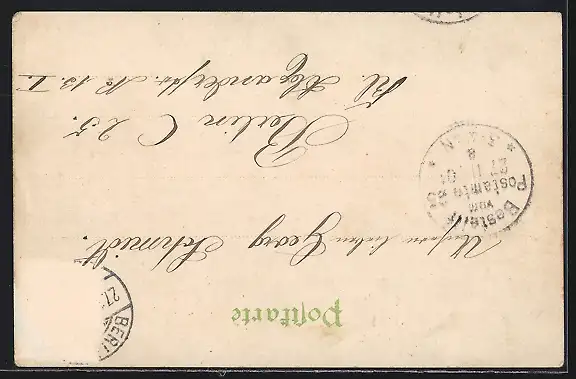 Postkarte
Unserm lieben Georg Schmidt.
Berlin C 25.
Kl. Alexanderstr. No 13. I.
Bestellt
vom
Postamte 25
27 11 01
8
BERL
27.